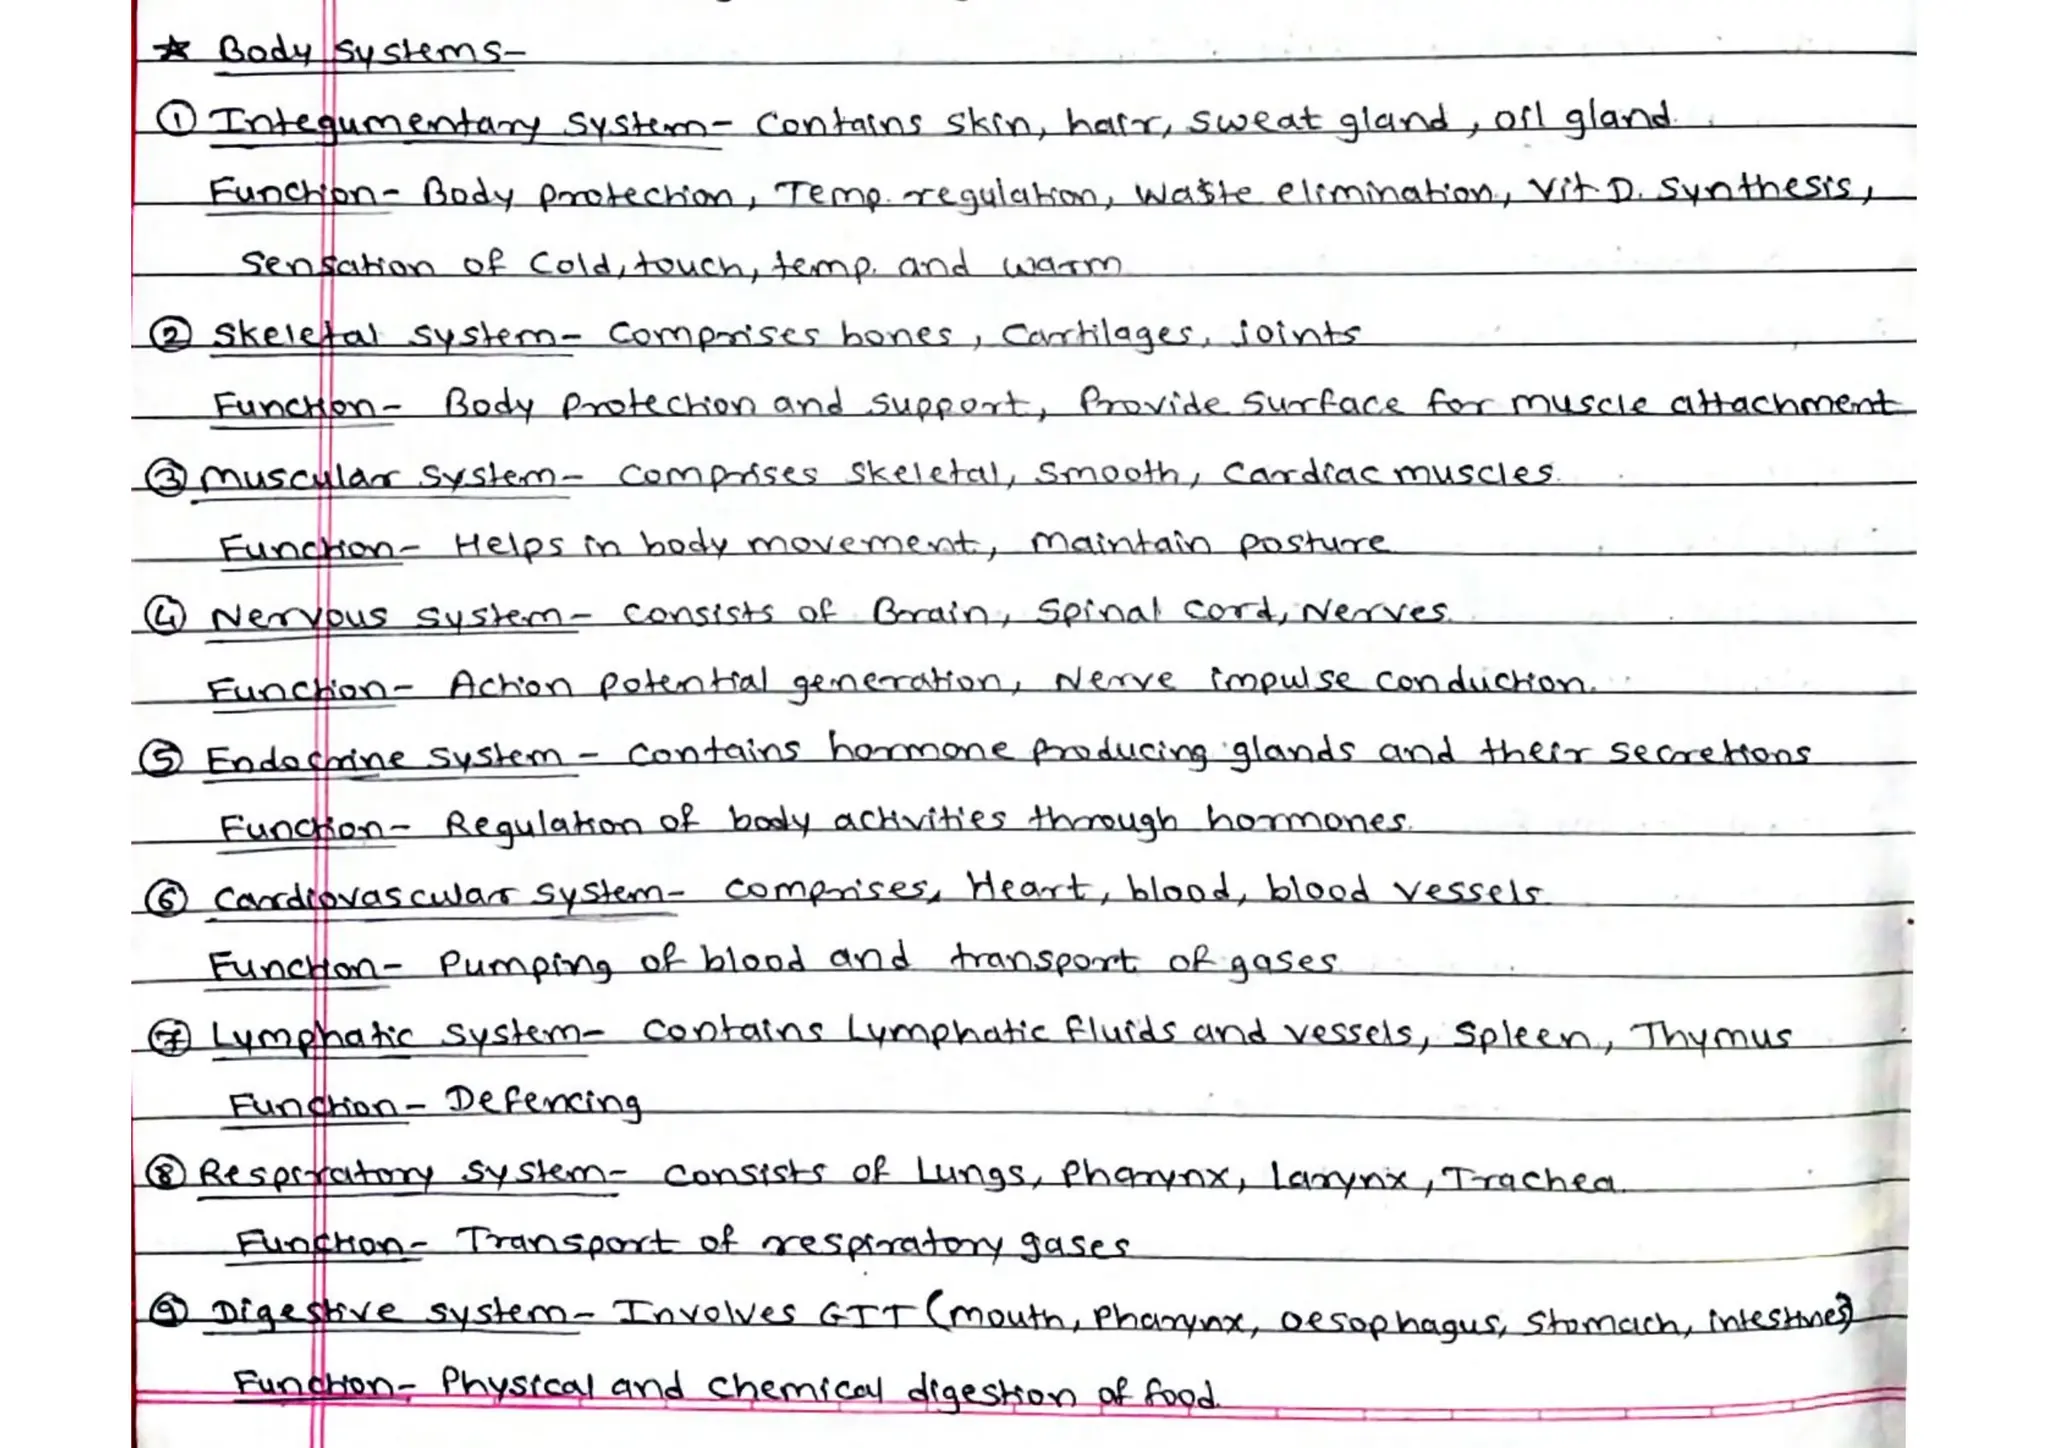 ☆ Body systems-
① Integumentary system- Contains skin, hair, sweat gland, oil gland.
Function- Body protection, Temp. regulation, Waste elimination, Vit D. Synthesis,
Sensation of Cold, touch, temp. and warm
② Skeletal system- Comprises bones, Cartilages, joints
Function- Body protection and support, Provide surface for muscle attachment
③ Muscular system- Comprises skeletal, Smooth, Cardiac muscles.
Function- Helps in body movement, maintain posture
④ Nervous system- Consists of Brain, Spinal cord, Nerves.
Function- Action potential generation, Nerve impulse conduction.
⑤ Endocrine system- Contains hormone producing glands and their secretions
Function- Regulation of body activities through hormones.
⑥ Cardiovascular system- Comprises, Heart, blood, blood vessels.
Function- Pumping of blood and transport of gases
⑦ Lymphatic system- Contains Lymphatic fluids and vessels, Spleen, Thymus
Function- Defencing
⑧ Respiratory system- Consists of Lungs, Pharynx, Larynx, Trachea.
Function- Transport of respiratory gases
⑨ Digestive system- Involves GIT (mouth, Pharynx, oesophagus, Stomach, intestines)
Function- Physical and chemical digestion of food.